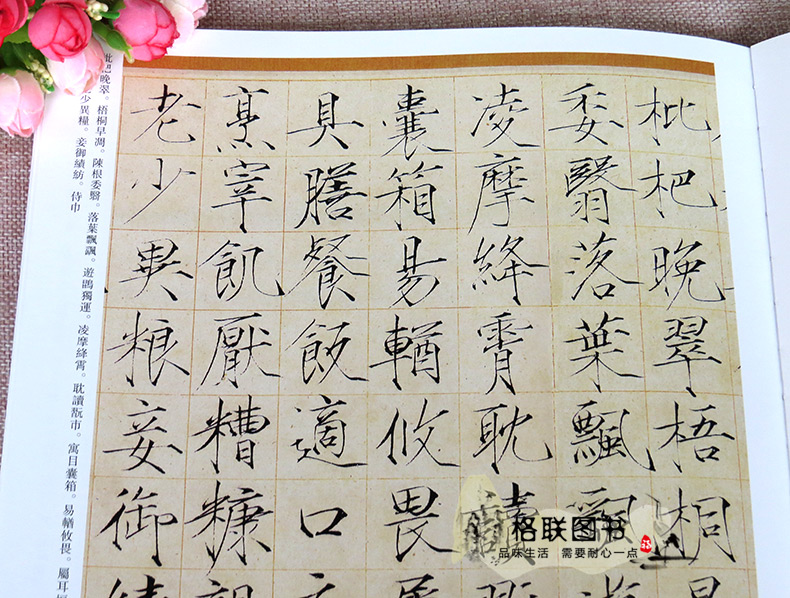 枇杷晚翠梧桐
委翳落葉飄颻
凌摩絳霄耽讀
囊箱易輶攸畏
具膳餐飯適口
烹宰飢厭糟糠
老少異粮妾御
晚翠。梧桐早凋。陳根委翳。落葉飄颻。遊鵾獨運。凌摩絳霄。耽讀翫市。寓目囊箱。易輶攸畏。屬耳
少異糧。妾御績紡。侍巾
格联图书
品味生活 需要耐心一点